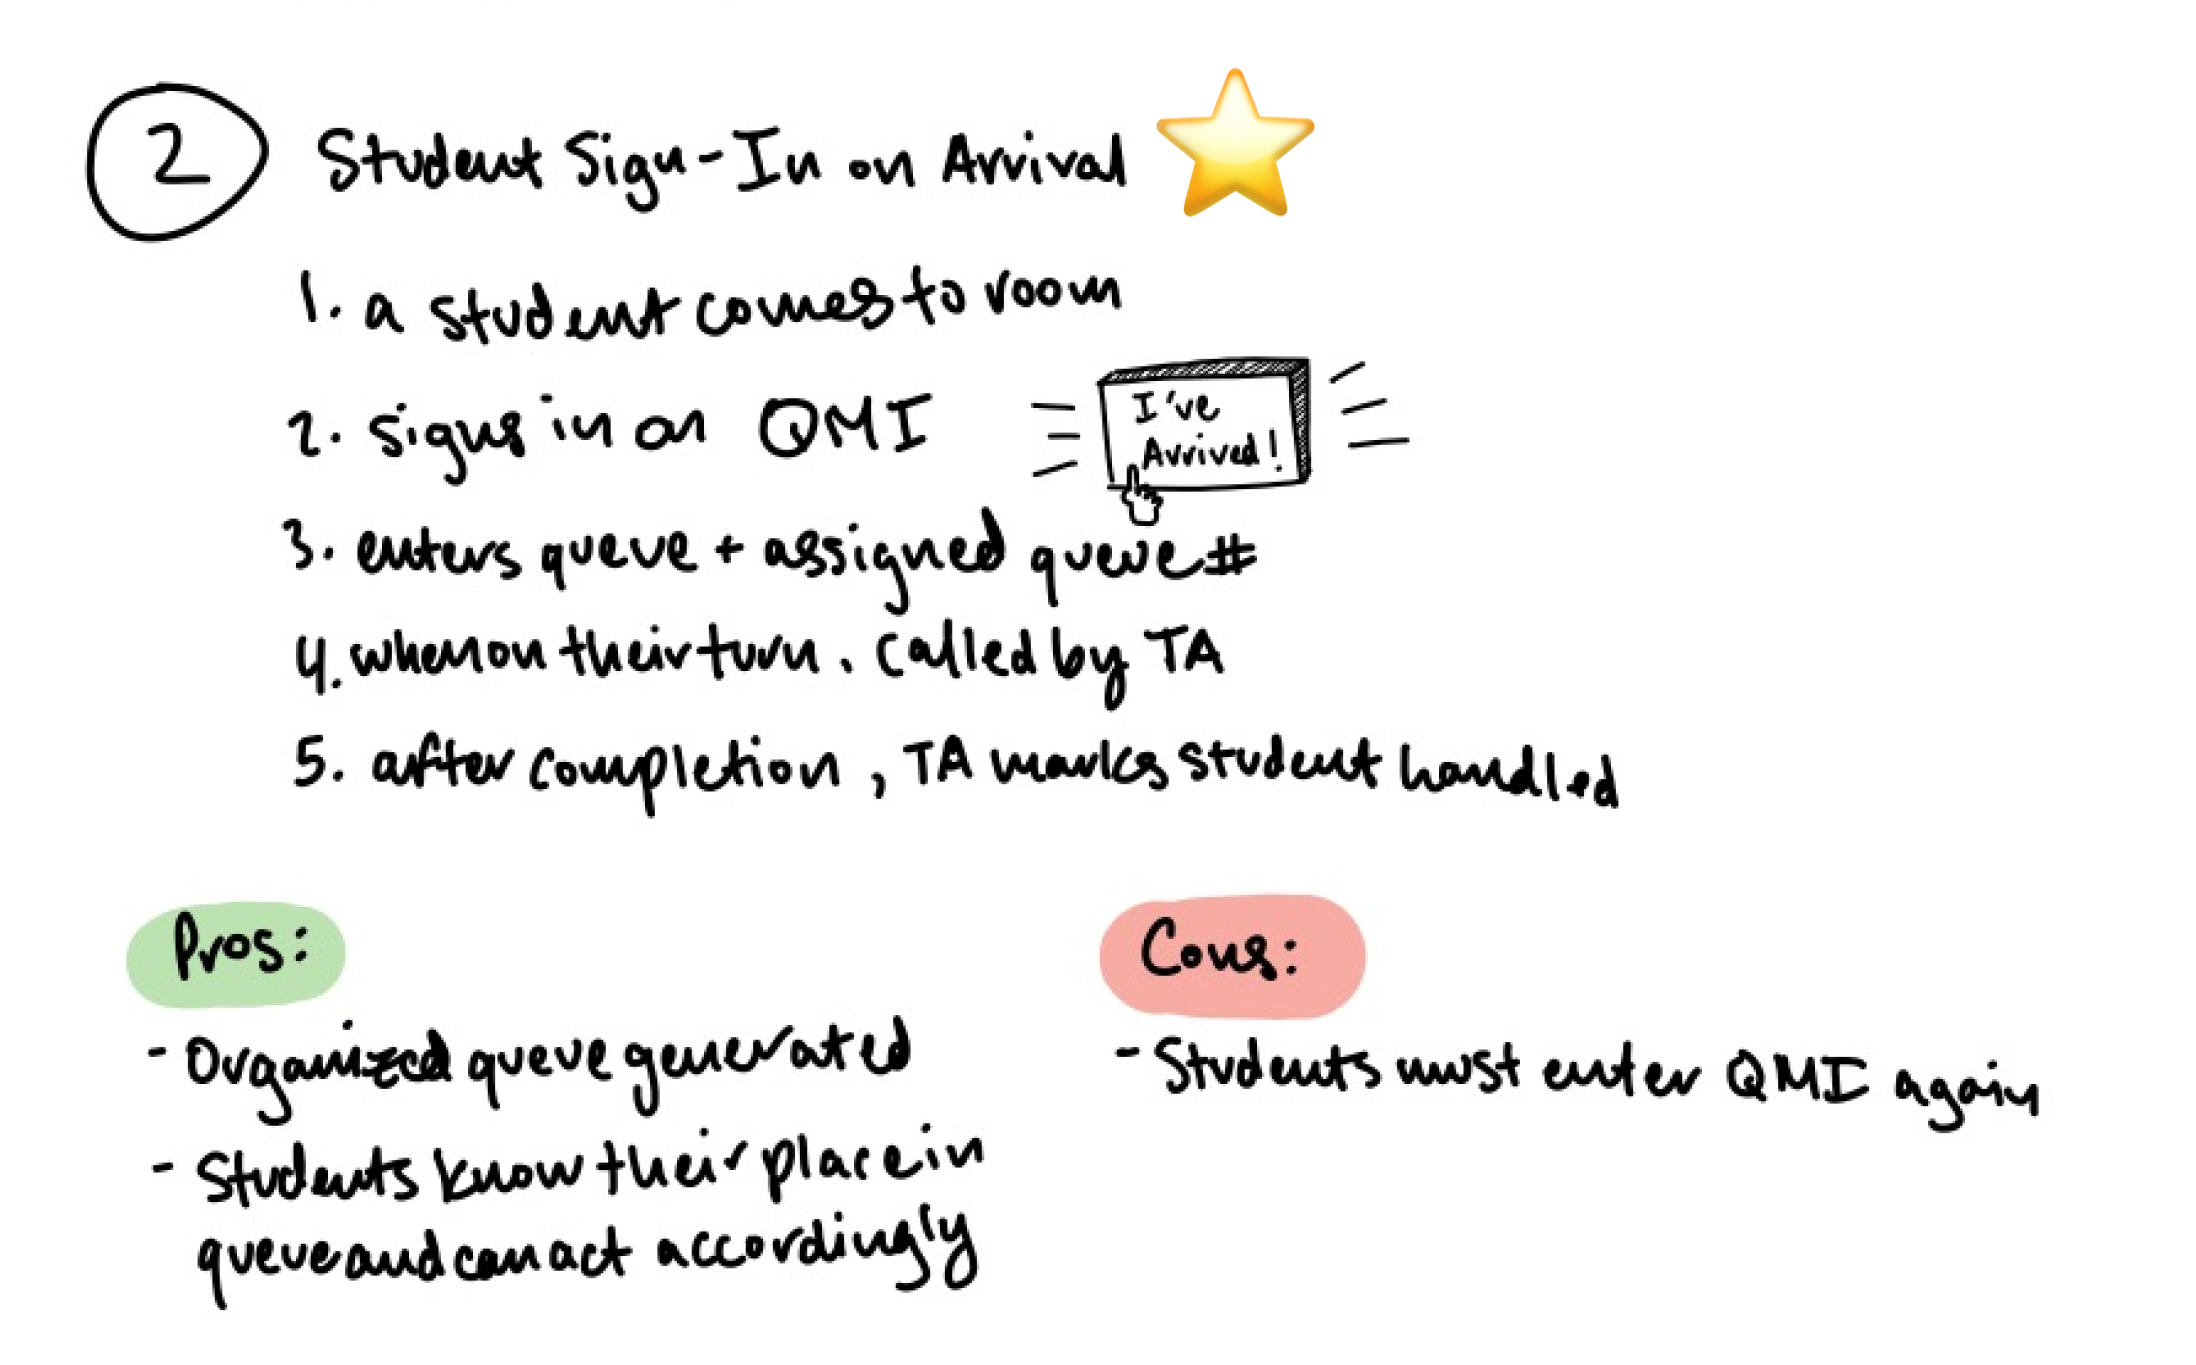 2 Student Sign-In on Arrival
1. a student comes to room
2. signs in on QMI
I've
Arrived!
3. enters queue + assigned queue #
4. when on their turn, called by TA
5. after completion, TA marks student handled
Pros:
- Organized queue generated
- Students know their place in
queue and can act accordingly
Cons:
- Students must enter QMI again